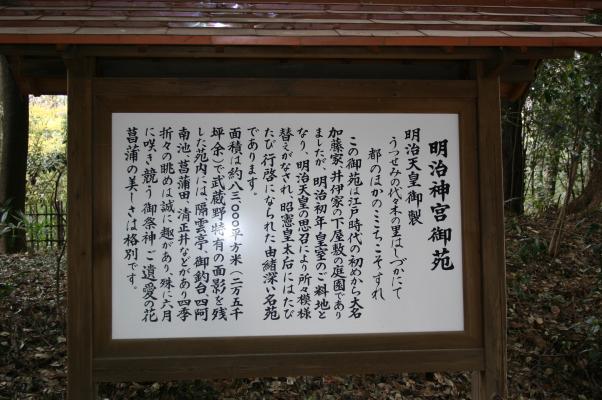 明治神宮御苑
明治天皇御製
うつせみの代々木の里はしづかにて
都のほかのこゝちこそすれ
この御苑は江戸時代の初めから大名
加藤家、井伊家の下屋敷の庭園であり
ましたが、明治初年皇室のご料地と
なり、明治天皇の思召により所々模様
替えがなされ、昭憲皇太后にはたび
たび行啓になられた由緒深い名苑
であります。
面積は約八三〇〇〇平方米(二万五千
坪余)で武蔵野特有の面影を残
した苑内には、隔雲亭、御釣台、四阿
南池、菖蒲田、清正井などがあり四季
折々の眺めは誠に趣があり、殊に六月
に咲き競う御祭神ご遺愛の花
菖蒲の美しさは格別です。